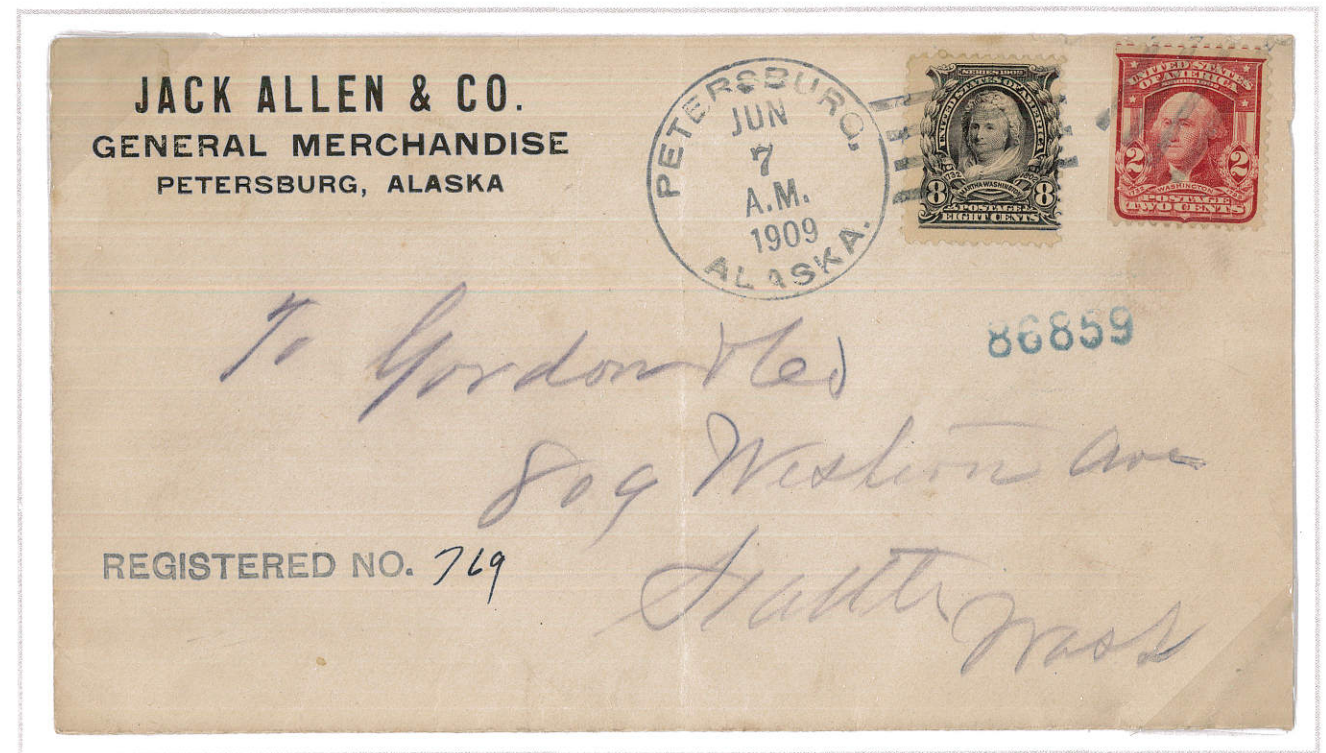 JACK ALLEN & CO.
GENERAL MERCHANDISE
PETERSBURG, ALASKA
PETERSBURG,
JUN
7
A.M.
1909
ALASKA.
SERIES 1902
UNITED STATES OF AMERICA
1732 1802
MARTHA WASHINGTON
8 8
POSTAGE
EIGHT CENTS
UNITED STATES
OF AMERICA
2 2
1732 WASHINGTON 1799
POSTAGE
TWO CENTS
86859
To Gordon & Co
809 Western Ave
Seattle
Wash
REGISTERED NO. 769